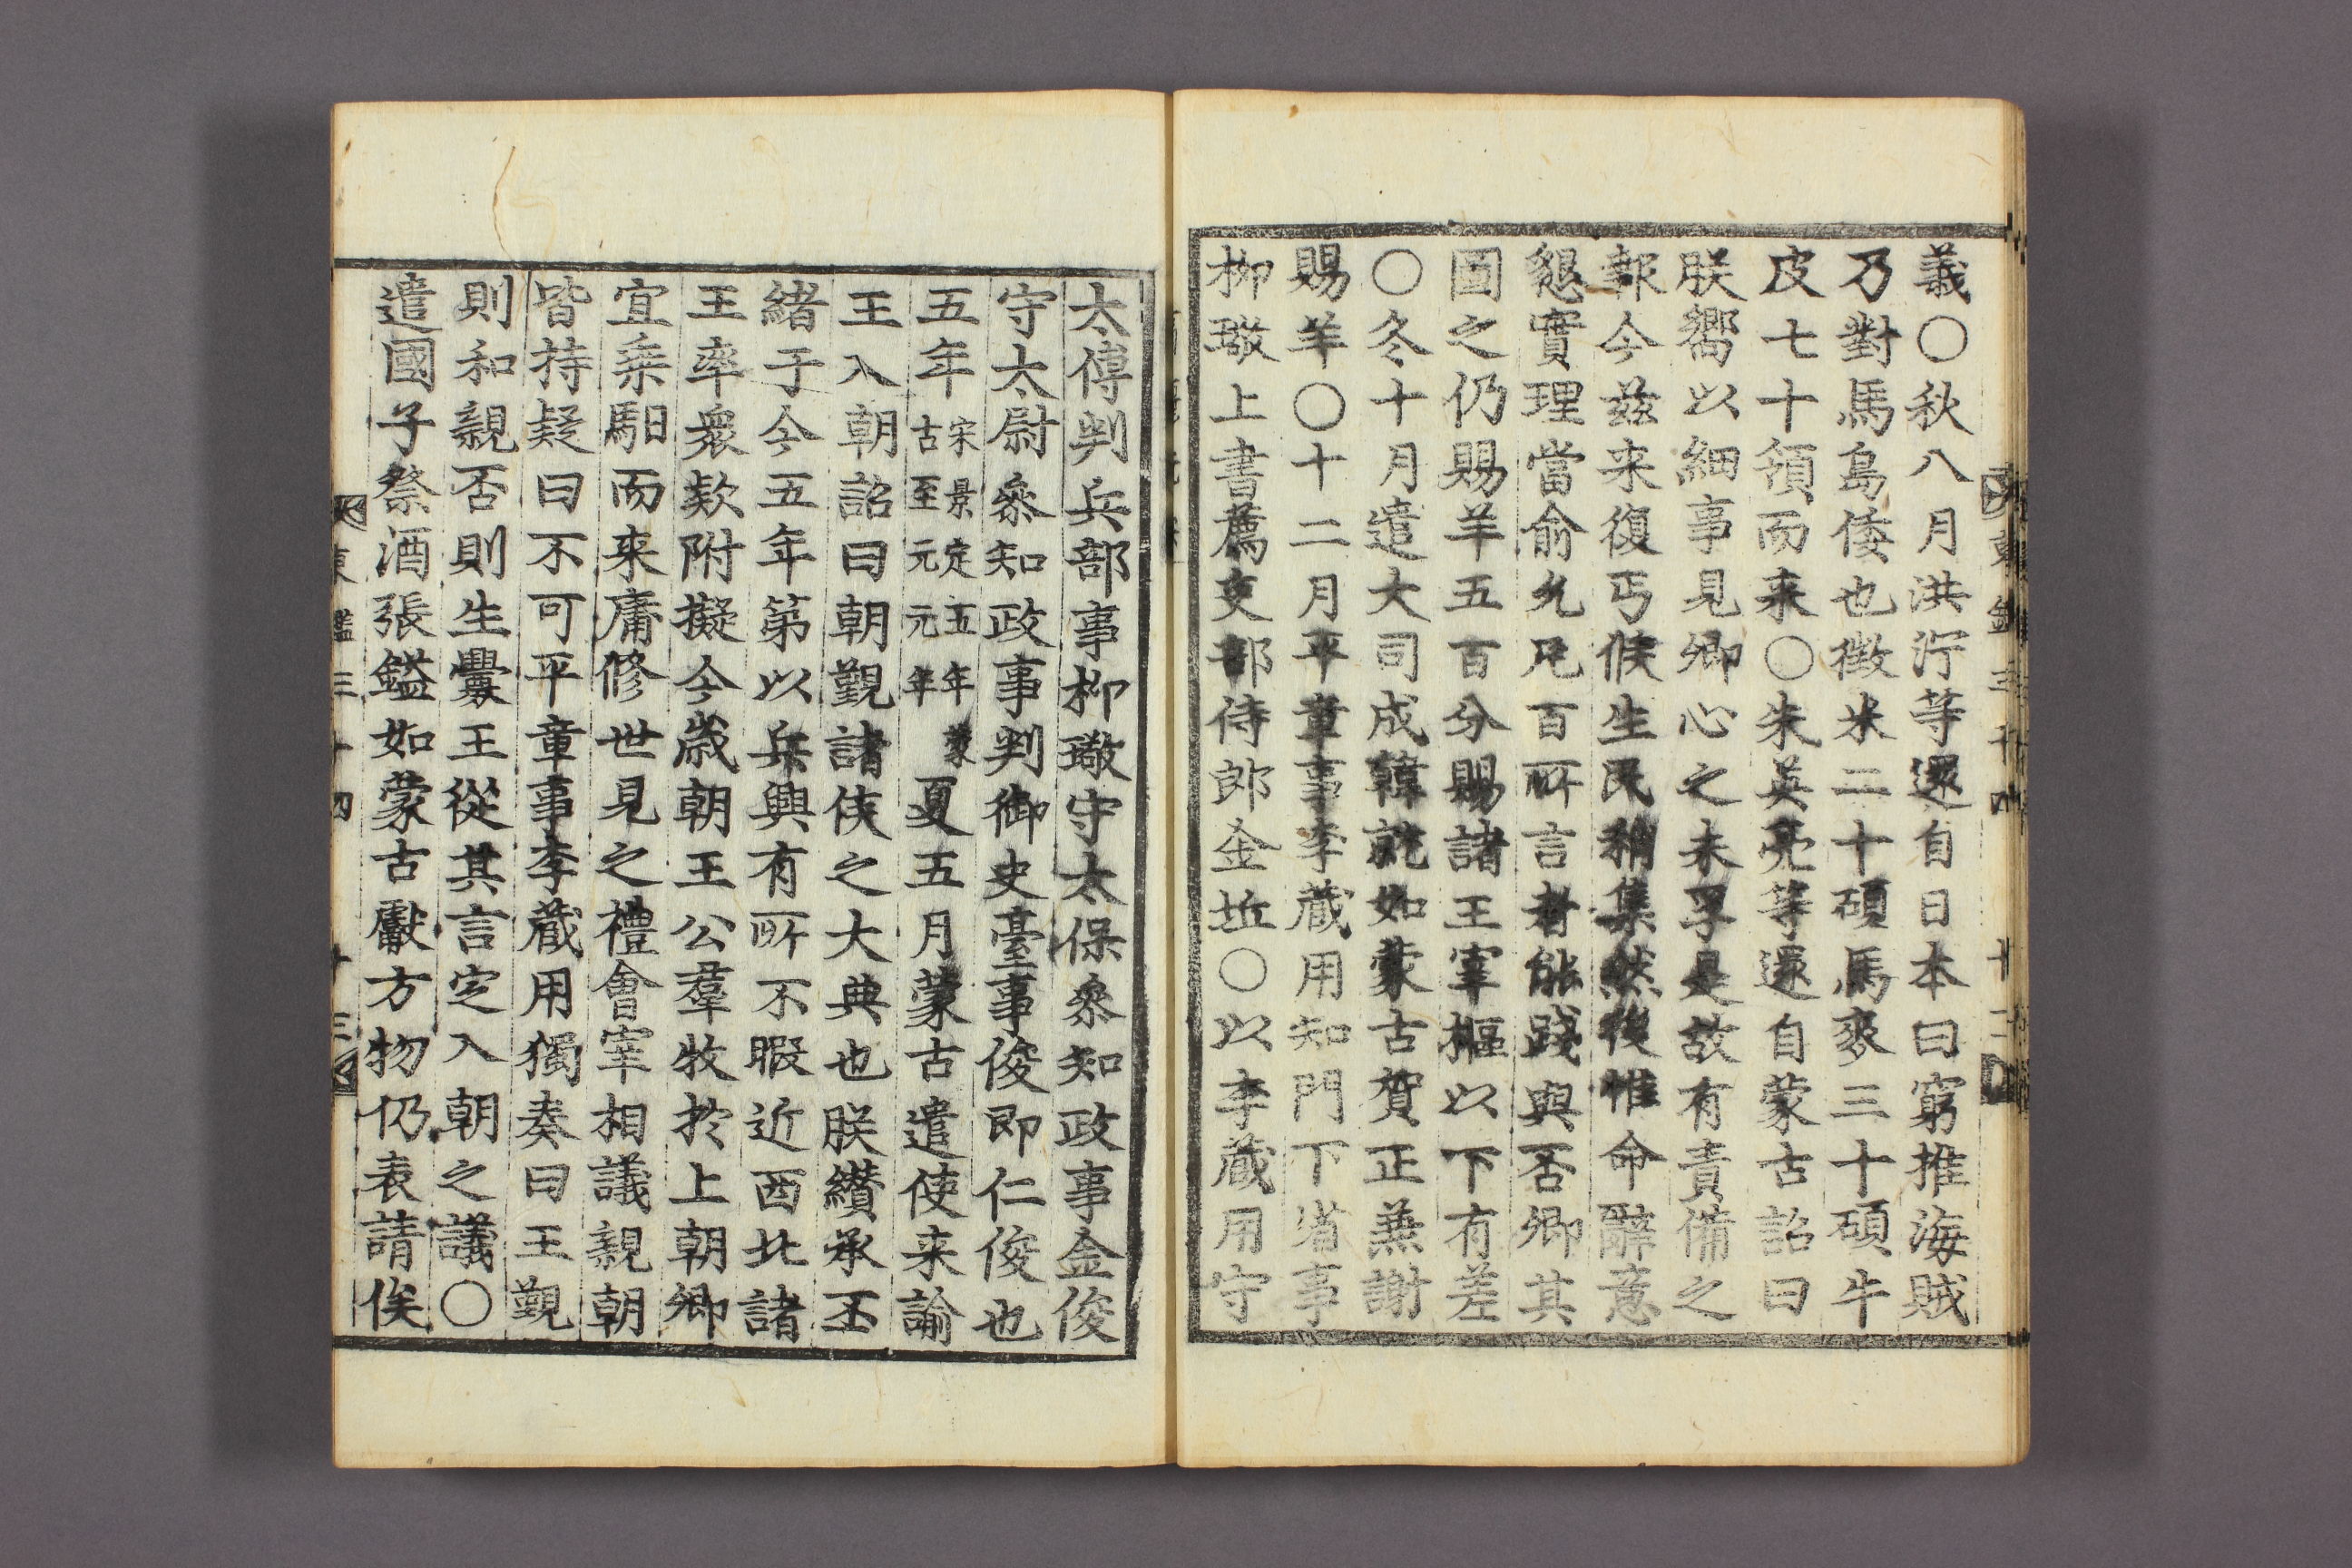 義○秋八月洪泞等還自日本曰窮推海賊
乃對馬島倭也徵米二十碩馬麥三十碩牛
皮七十領而来○朱英亮等還自蒙古詔曰
朕嚮以細事見卿心之未孚是故有責備之
報今玆来復丐候生民稍集然後惟命辭意
懇實理當俞允凡百所言者能踐與否卿其
圖之仍賜羊五百分賜諸王宰樞以下有差
○冬十月遣大司成韓就如蒙古賀正兼謝
賜羊○十二月平章事李蔵用知門下省事
柳璥上書薦吏部侍郎金坵○以李蔵用守
太傅判兵部事柳璥守太保叅知政事金俊
守太尉叅知政事判御史臺事俊即仁俊也
五年宋景定五年蒙古至元元年夏五月蒙古遣使来諭
王入朝詔曰朝覲諸侯之大典也朕纘承丕
緒于今五年第以兵興有所不暇近西北諸
王率衆欵附擬今歲朝王公羣牧於上朝卿
宜乗馹而来庸修世見之禮會宰相議親朝
皆持疑曰不可平章事李蔵用獨奏曰王覲
則和親否則生釁王從其言定入朝之議○
遣國子祭酒張鎰如蒙古獻方物仍表請俟
東鑑三十四 十三